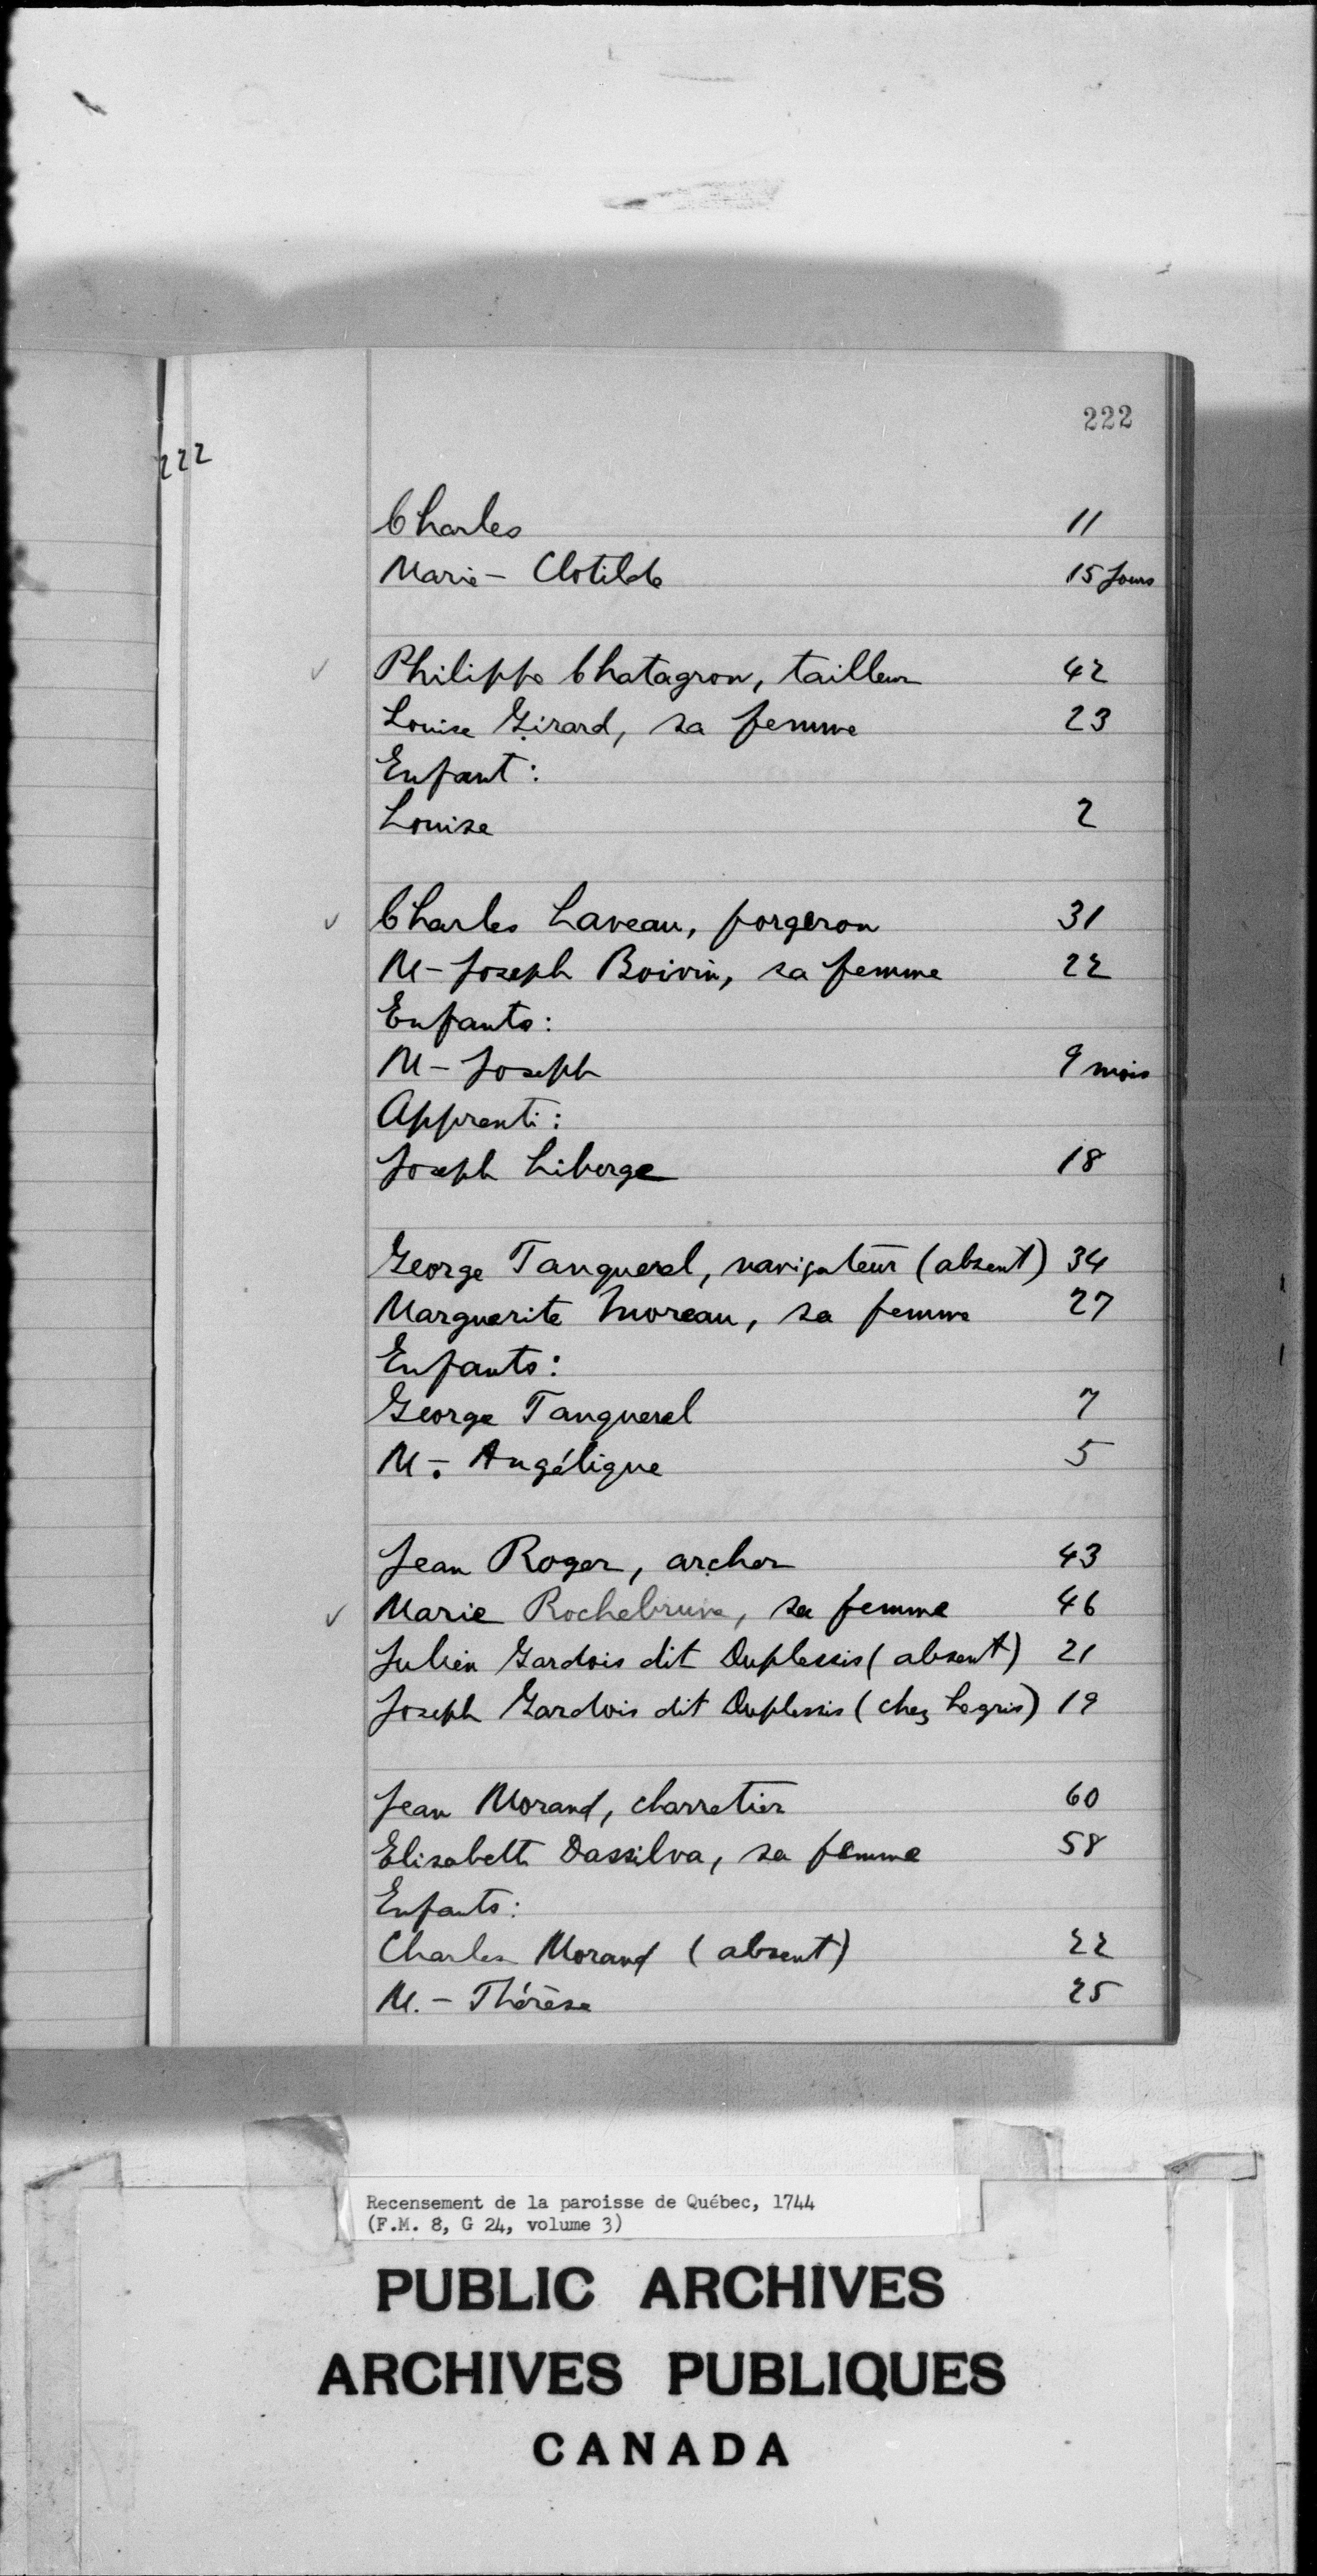 222
222
Charles 11
Marie - Clotilde 15 Jours
Philippe Chatagron, tailleur 42
Louise Girard, sa femme 23
Enfant :
Louise 2
Charles Laveau, forgeron 31
M - Joseph Boivin, sa femme 22
Enfants :
M - Joseph 9 mois
Apprenti :
Joseph Liberge 18
George Tanguerel, navigateur (absent) 34
Marguerite Moreau, sa femme 27
Enfants :
George Tanguerel 7
M. - Angélique 5
Jean Roger, archer 43
Marie Rochebrune, sa femme 46
Julien Gardois dit Duplessis (absent) 21
Joseph Gardois dit Duplessis (chez Legris) 19
Jean Morand, charretier 60
Elisabeth Dassilva, sa femme 58
Enfants :
Charles Morand (absent) 22
M. - Thérèse 25
Recensement de la paroisse de Québec, 1744
(F.M. 8, G 24, volume 3)
PUBLIC ARCHIVES
ARCHIVES PUBLIQUES
CANADA